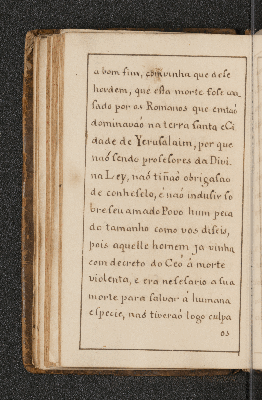 a bom fim, convinha que dese
hordem, que esta morte fose cau-
sado por os Romanos que emtaõ
dominavaõ na terra santa e Ci
dade de Yerusalaim, por que
naõ sendo profesores da Divi-
na Ley, naõ tiñaõ obrigasaõ
de conheselo, é naõ indusir so
bre seu amado Povo hum peca
do tamanho como vos diseis,
pois aquelle homem ja vinha
com decreto do Ceó á morte
violenta, e era nesesario a sua
morte para salvar á humana
especie, naõ tiveraõ logo culpa
os